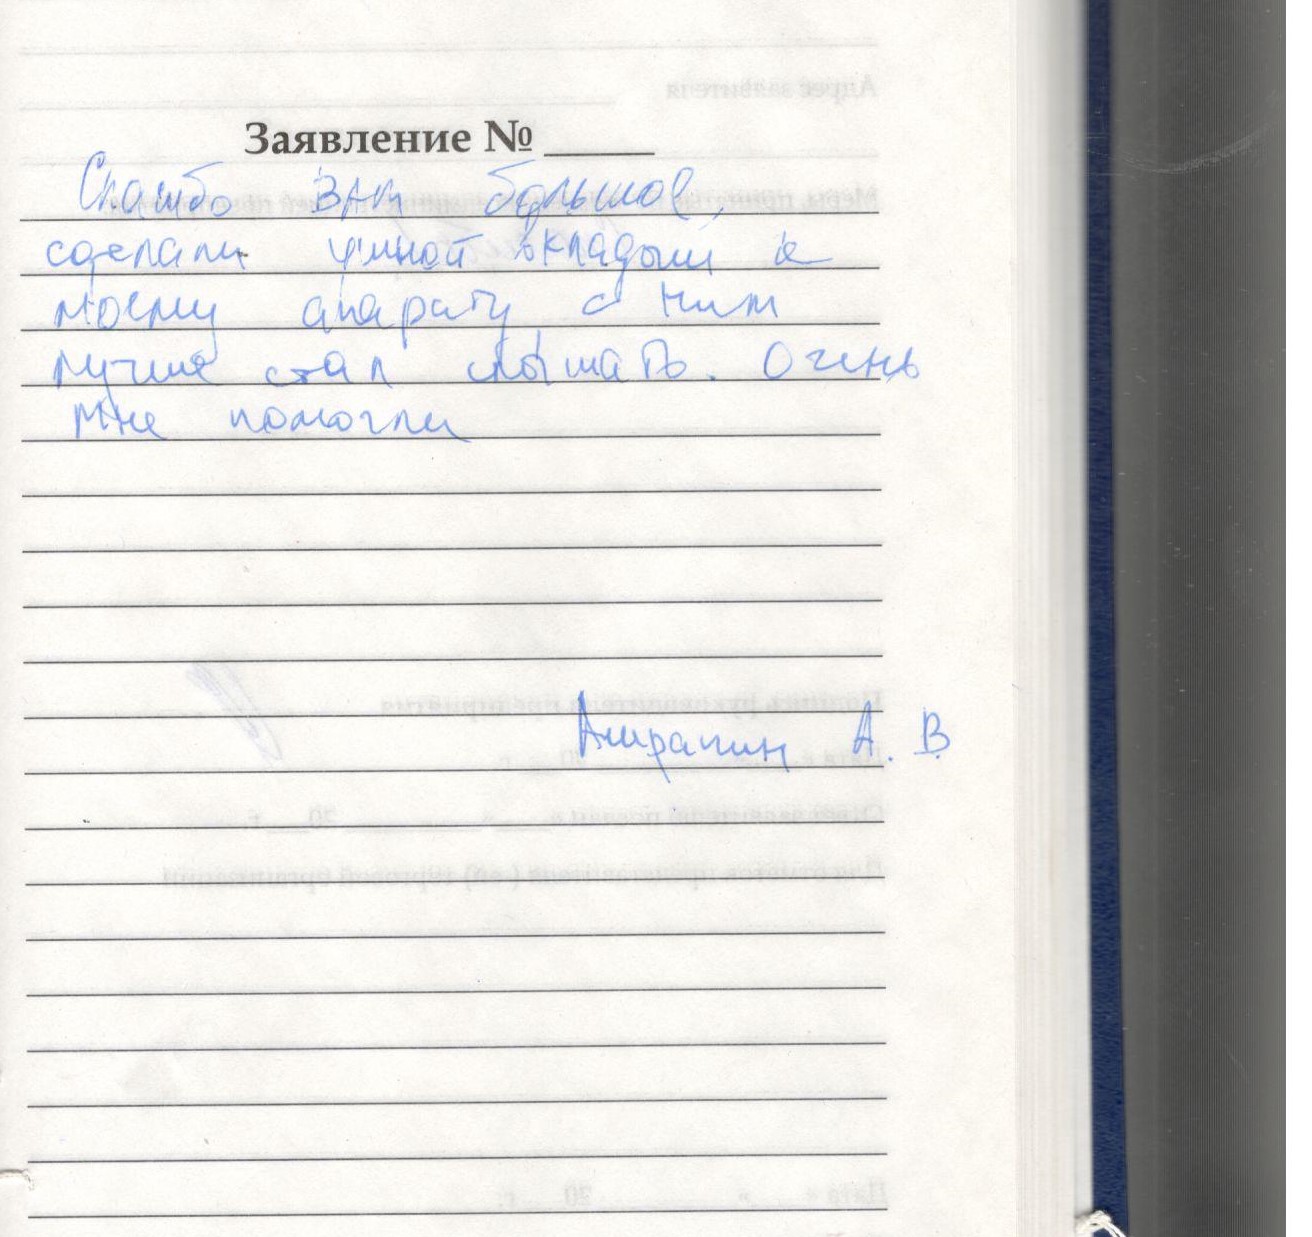 Заявление №
Спасибо вам большое,
сделали ушной вкладыш к
моему апарату с ним
лучше стал слышать. Очень
мне помогли
А. В.